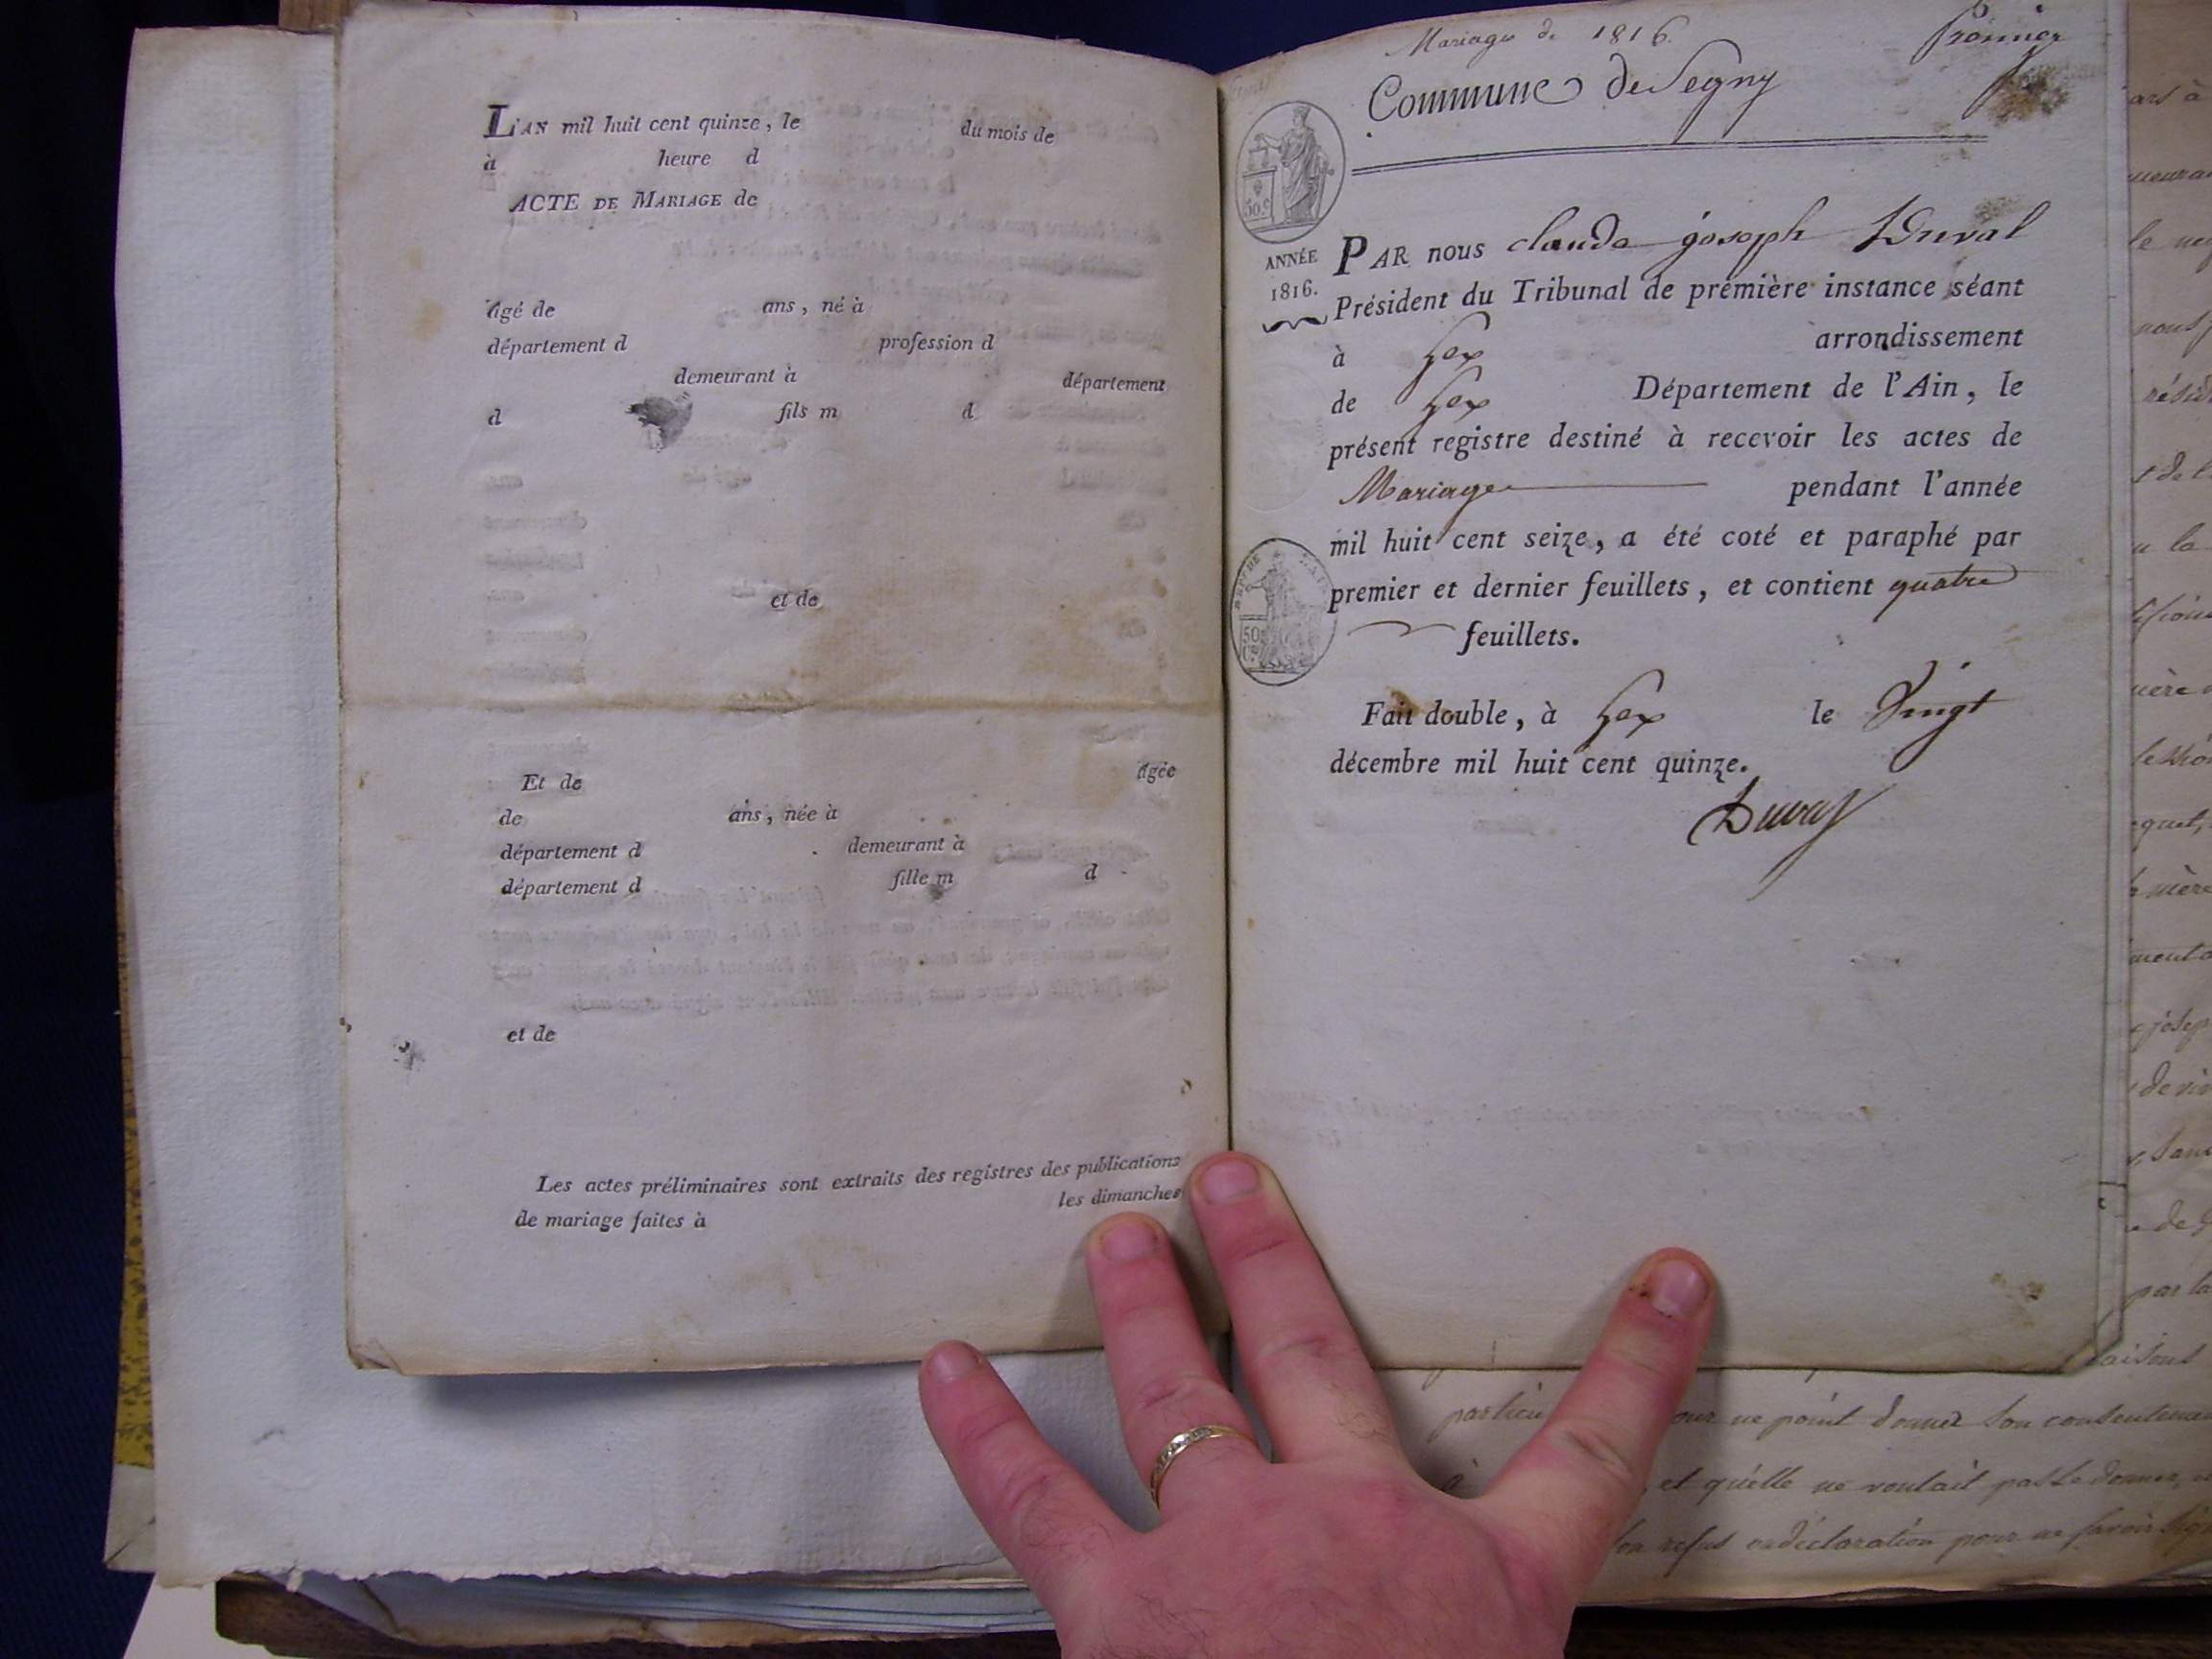 L'AN mil huit cent quinze, le du mois de
à heure d
ACTE DE MARIAGE de
âgé de ans, né à
département d profession d
demeurant à département
d fils m d
et de
Et de âgée
de ans, née à
département d demeurant à
département d fille m d
et de
Les actes préliminaires sont extraits des registres des publications
de mariage faites à les dimanches
Mariages de 1816.
premier
Commune de Segny
50.c
ANNÉE
1816.
PAR nous claude joseph Duval
Président du Tribunal de première instance séant
à Gex arrondissement
de Gex Département de l'Ain, le
présent registre destiné à recevoir les actes de
Mariage pendant l'année
mil huit cent seize, a été coté et paraphé par
premier et dernier feuillets, et contient quatre
feuillets.
50
Fait double, à Gex le Vingt
décembre mil huit cent quinze.
Duval
ne point donner son consentement
et qu'elle ne voulait pas le donner,
refus déclaration pour ne savoir